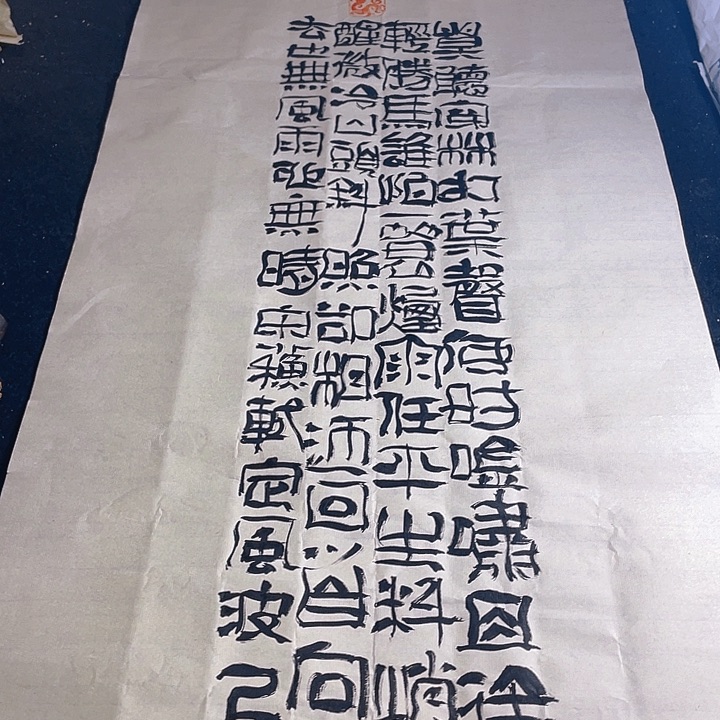 莫聽穿林打葉聲何妨吟嘯且徐
輕勝馬誰怕一蓑煙雨任平生料峭
醒微冷山頭斜照卻相迎回首向
去也無風雨也無晴宋蘇軾定風波